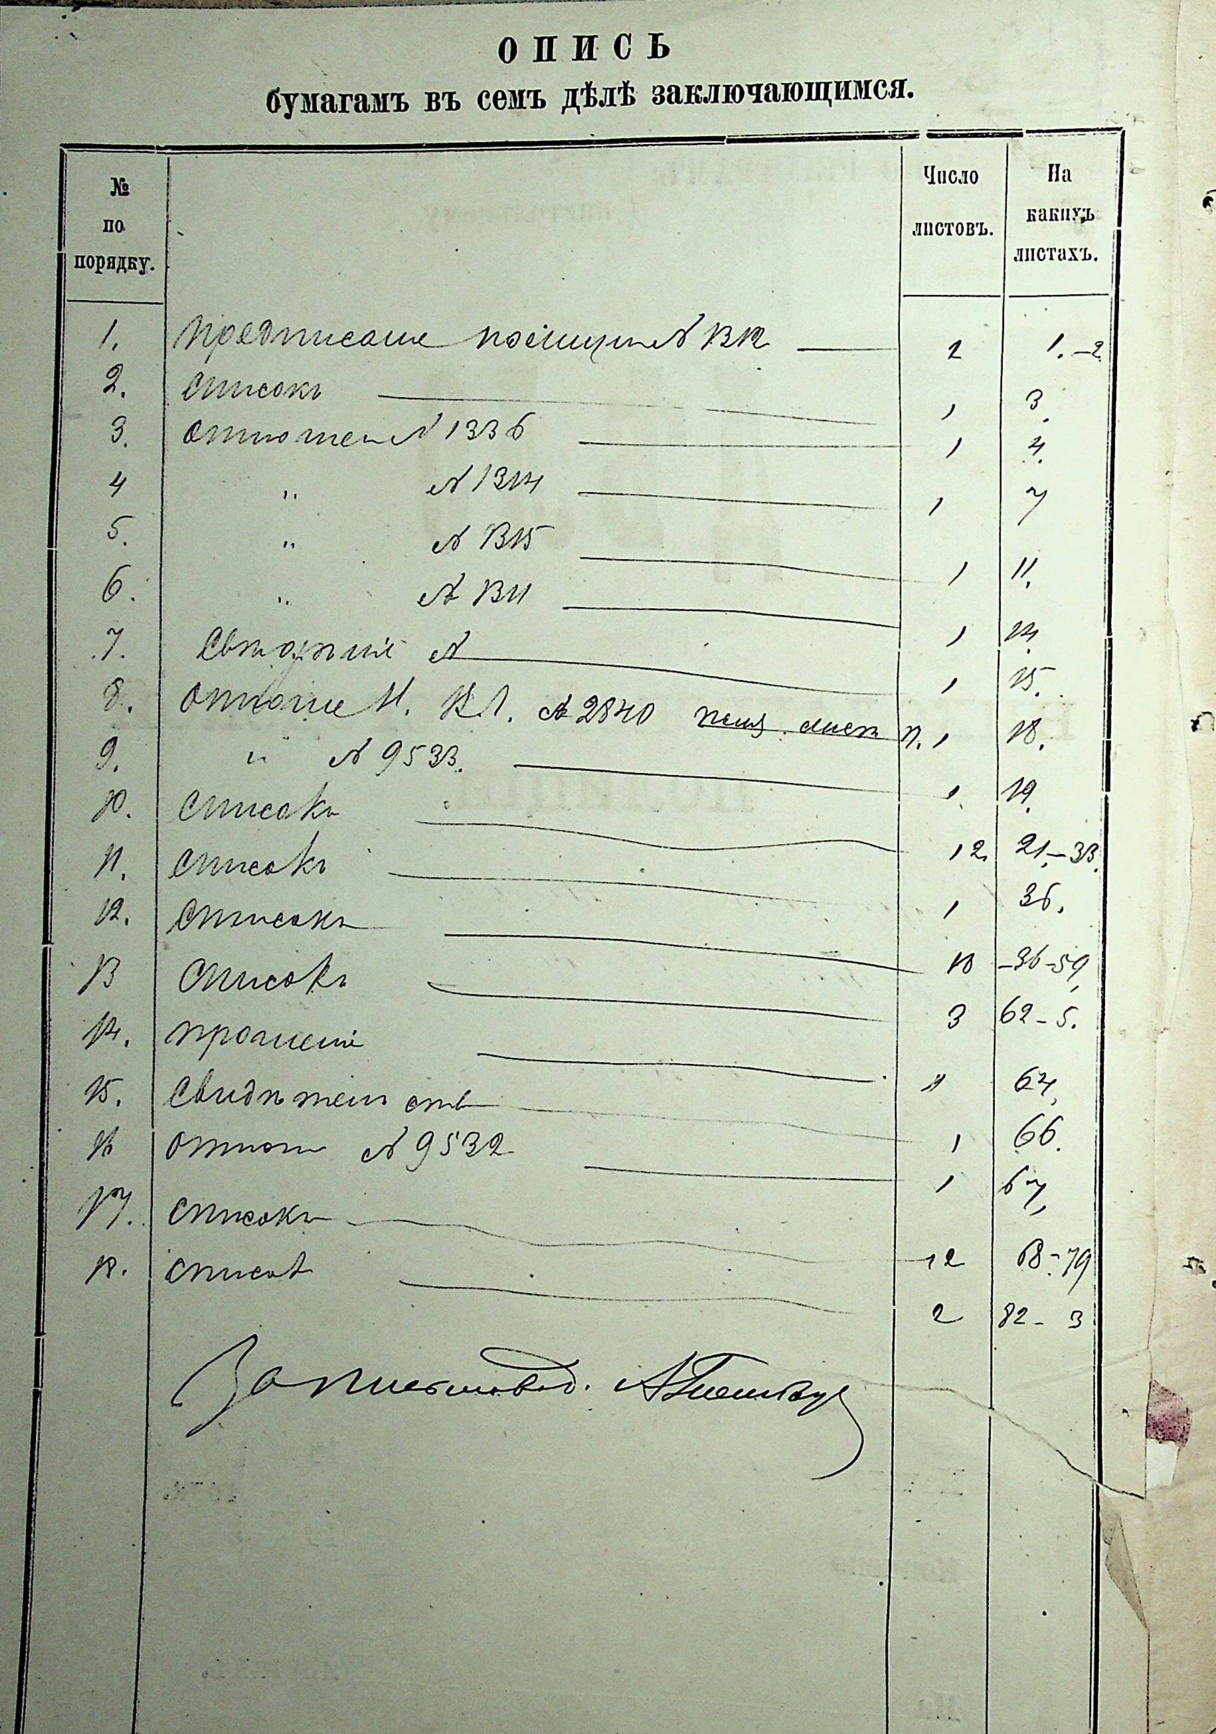 ОПИСЬ
бумагамъ въ семъ дѣлѣ заключающимся.
№ по порядку.
Число листовъ.
На какихъ листахъ.
1. Предписаніе полиціи № 1312 2 1.-2
2. Списокъ 1 3.
3. Отношен № 1336 1 4.
4 " № 1314 1 7
5. " № 1315 1 11.
6. " № 1311 1 14.
7. № 1 15.
8. Отноше № 2840 1 18.
9. " № 9533. 1 19.
10. Списокъ 12 21-33.
11. Списокъ 1 36.
12. Списокъ 18 -36-59,
13 Списокъ 3 62-5.
14. Прошеніе 64,
15. Свидѣтельств 1 66.
16 Отнош № 9532 1 67,
17. Списокъ 12 68-79
18. Списокъ 2 82-3
За письмовод.